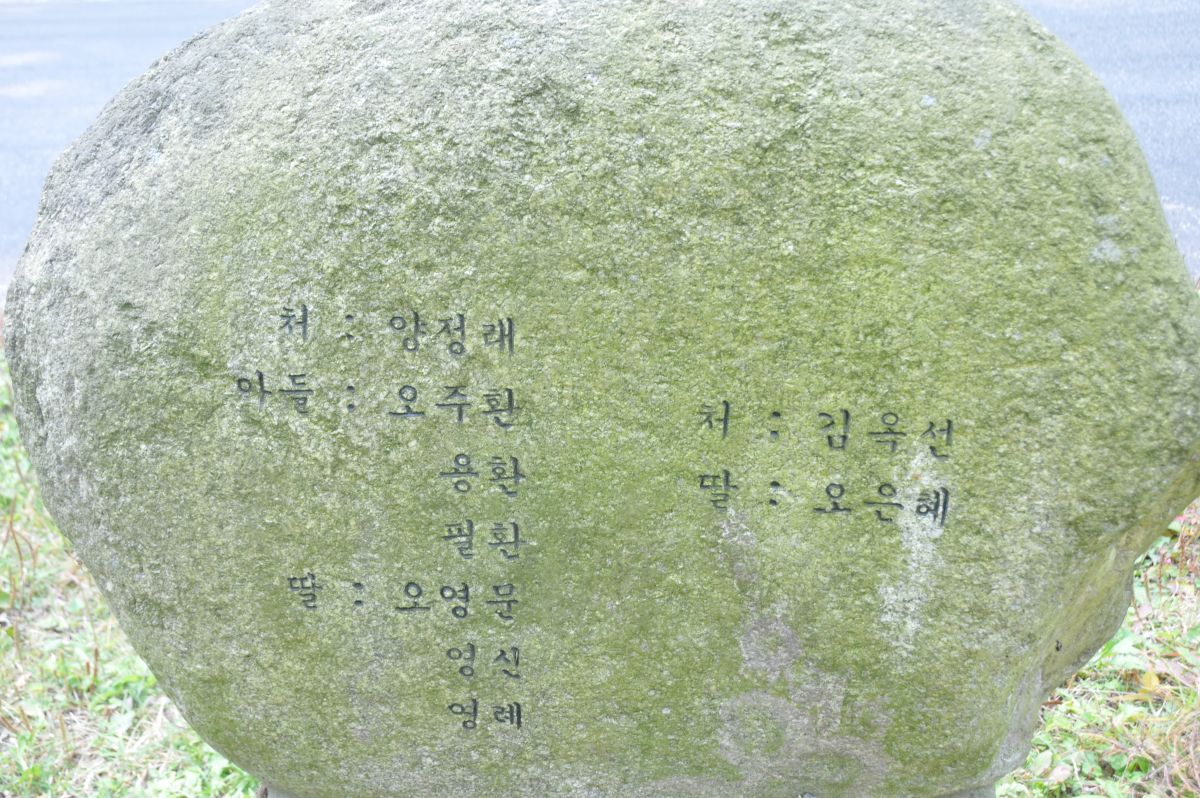 처 : 양정래
아들 : 오주환
용환
필환
딸 : 오영문
영신
영례
처 : 김옥선
딸 : 오은혜